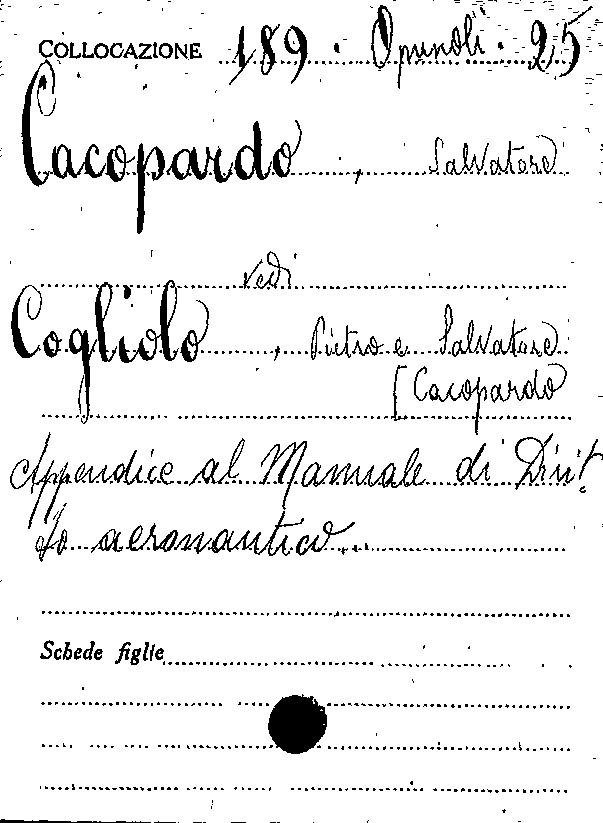 COLLOCAZIONE 189. Opunoli. 25
Cacopardo, Salvatore
vedi
Cogliolo, Pietro e Salvatore
[Cacopardo
Appendice al Manuale di Dirit-
to aeronautico...
Schede figlie